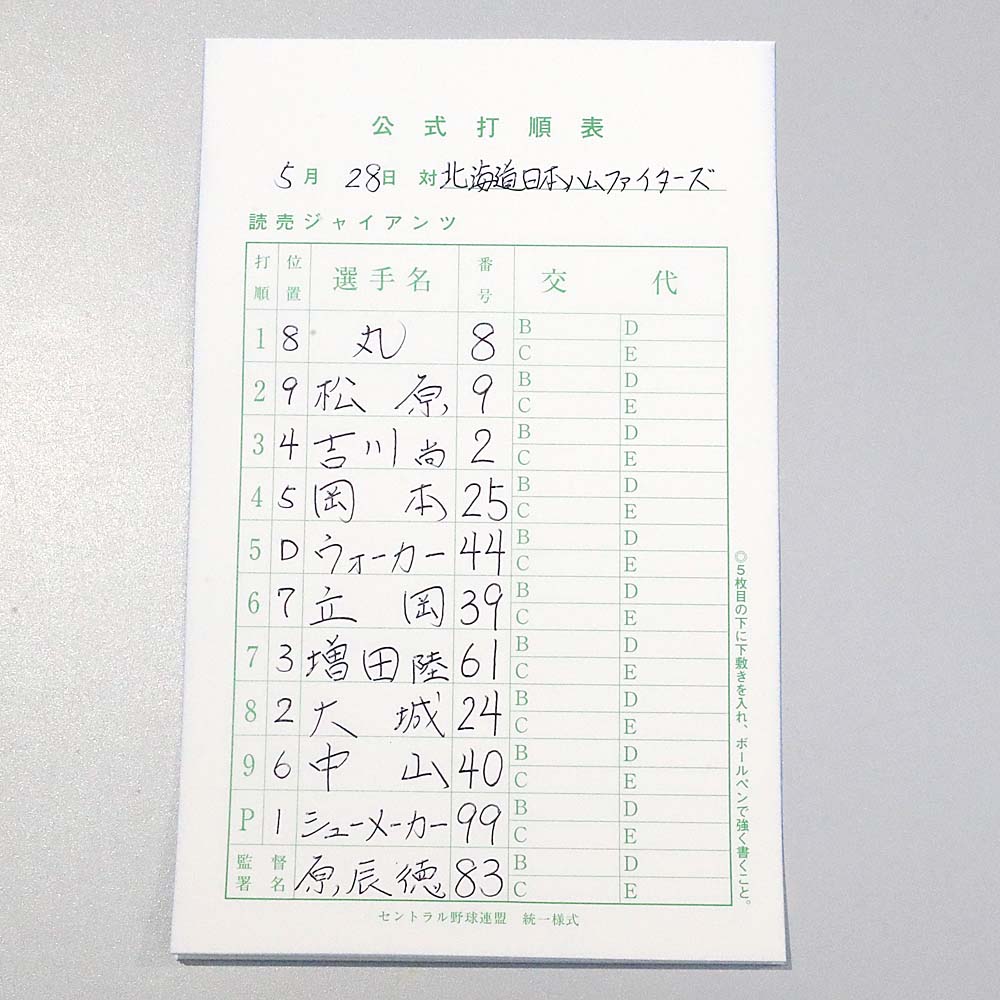 公式打順表
5月 28日 対 北海道日本ハムファイターズ
読売ジャイアンツ
打順 位置 選手名 番号 交代
1 8 丸 8 B D C E
2 9 松原 9 B D C E
3 4 吉川尚 2 B D C E
4 5 岡本 25 B D C E
5 D ウォーカー 44 B D C E
6 7 立岡 39 B D C E
7 3 増田陸 61 B D C E
8 2 大城 24 B D C E
9 6 中山 40 B D C E
P 1 シューメーカー 99 B D C E
監督署名 原辰徳 83 B D C E
セントラル野球連盟 統一様式
◎5枚目の下に下敷きを入れ、ボールペンで強く書くこと。